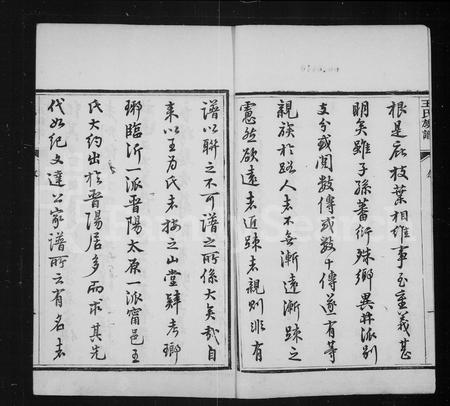 王氏族譜
根是庇枝葉相維事至重義甚
明矣雖子孫蕃衍殊鄉異井派別
支分或閱數傳或數十傳遂有等
親族於路人者不無漸遠漸踈之
憲然欲遠者近踈者親則非有
譜以聯之不可譜之所係大矣哉自
來以王為氏者按之山堂肆考瑯
琊臨沂一派晉陽太原一派甯邑王
氏大約出於晉陽居多而求其先
代如紀文達公家譜所云有名者